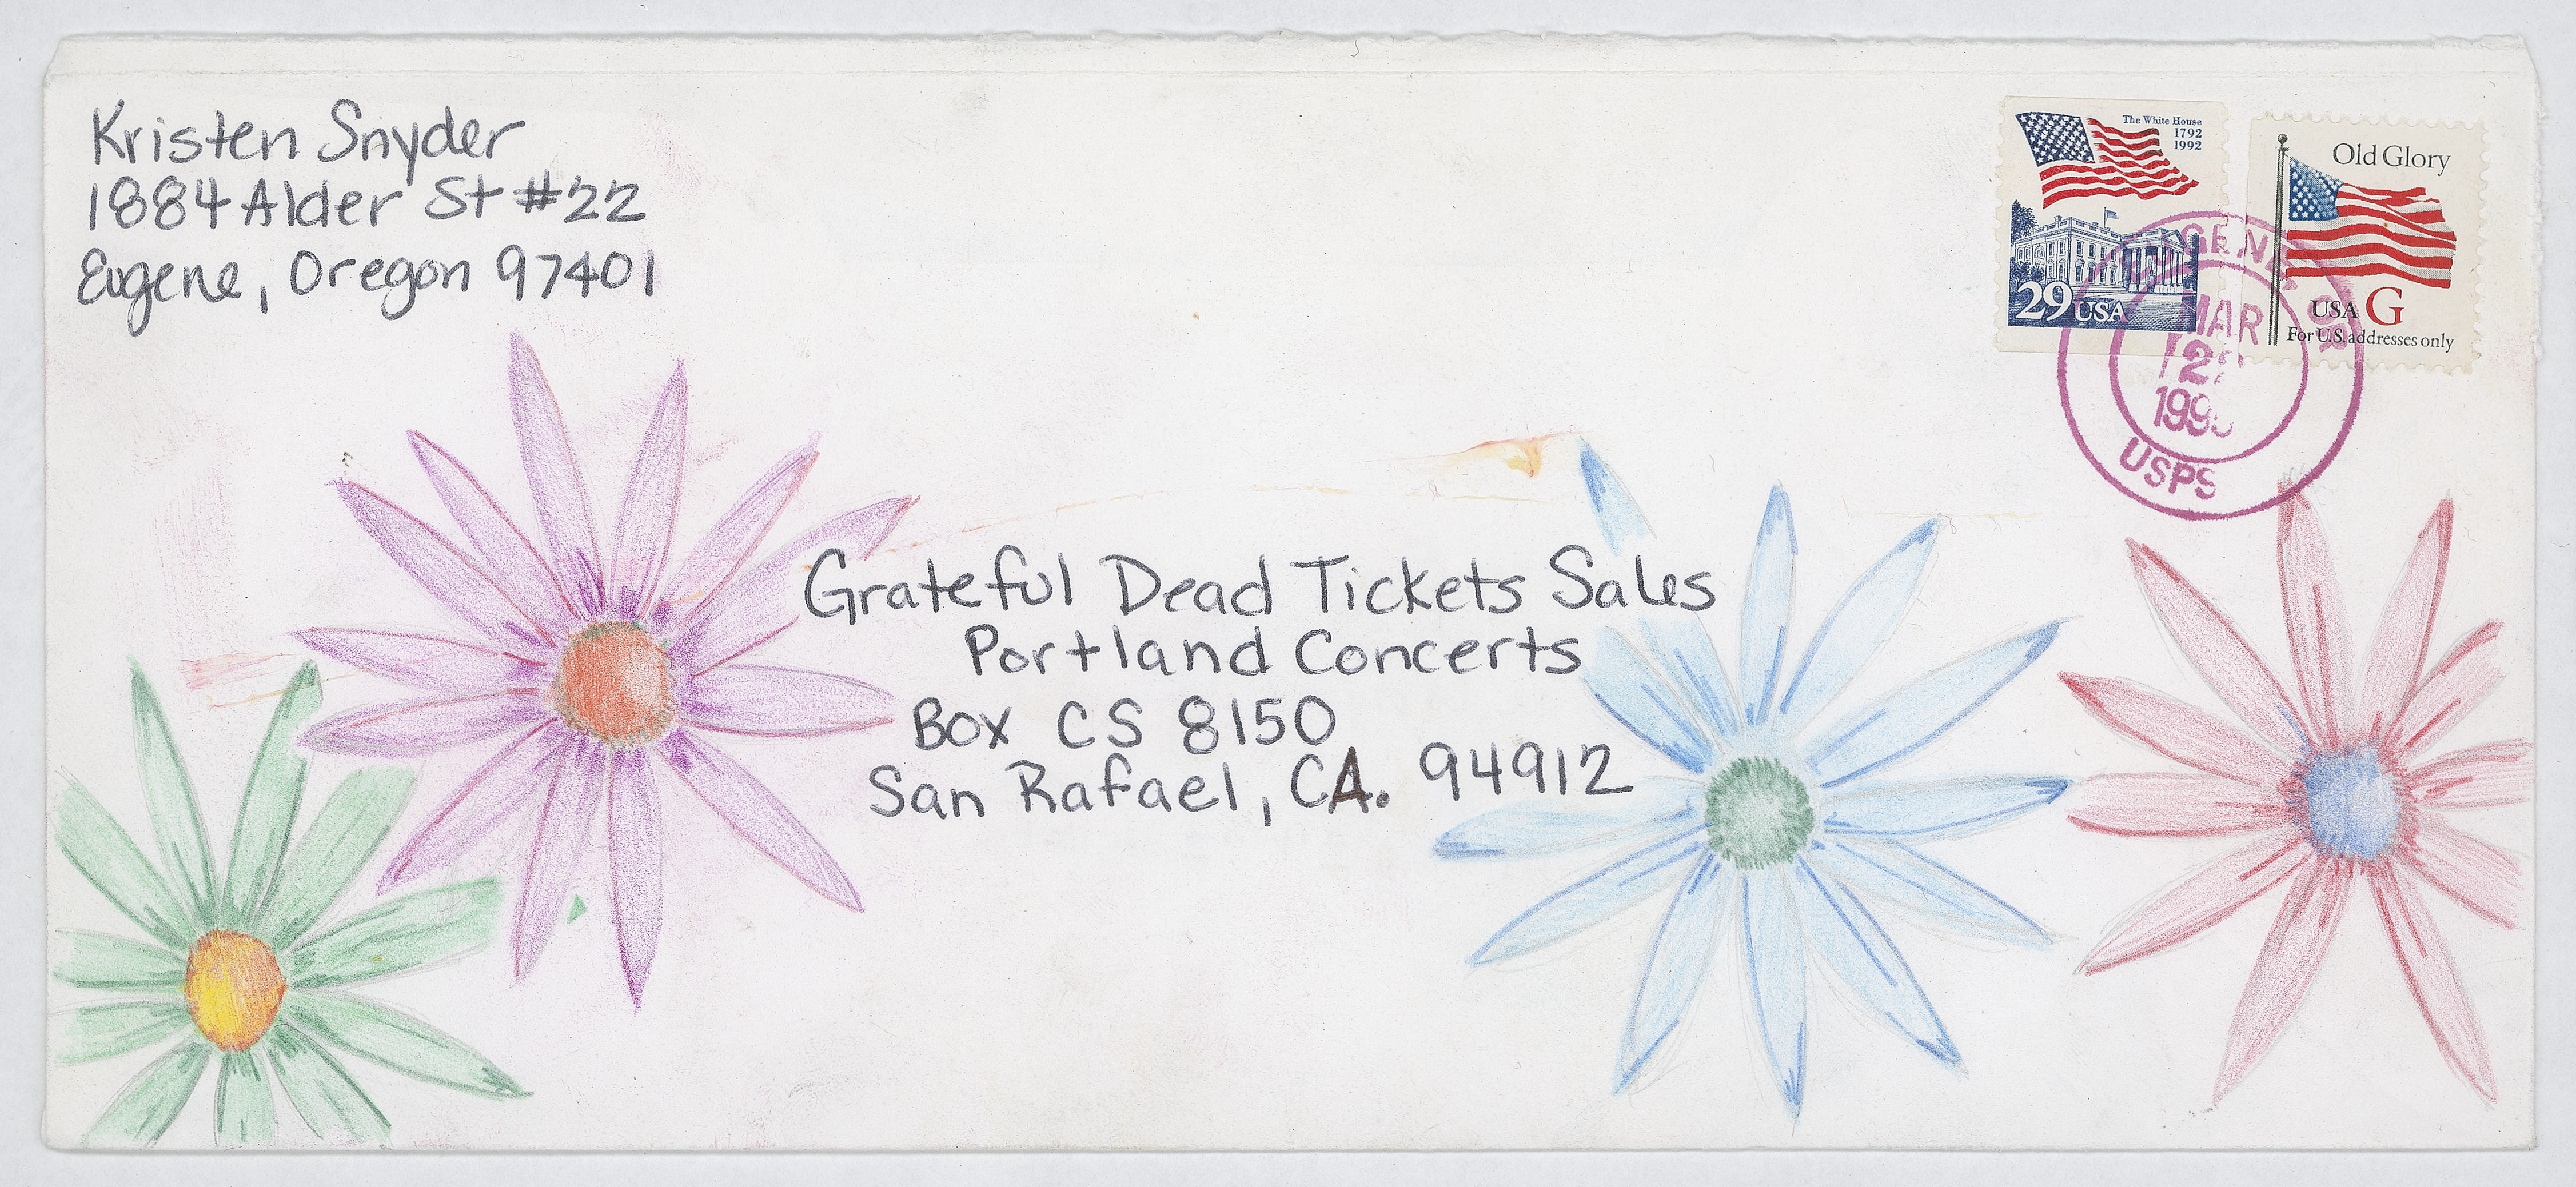 Kristen Snyder
1884 Alder St #22
Eugene, Oregon 97401
The White House
1792
1992
29 USA
Old Glory
USA G
For U.S. addresses only
MAR
USPS
Grateful Dead Tickets Sales
Portland Concerts
Box CS 8150
San Rafael, CA. 94912